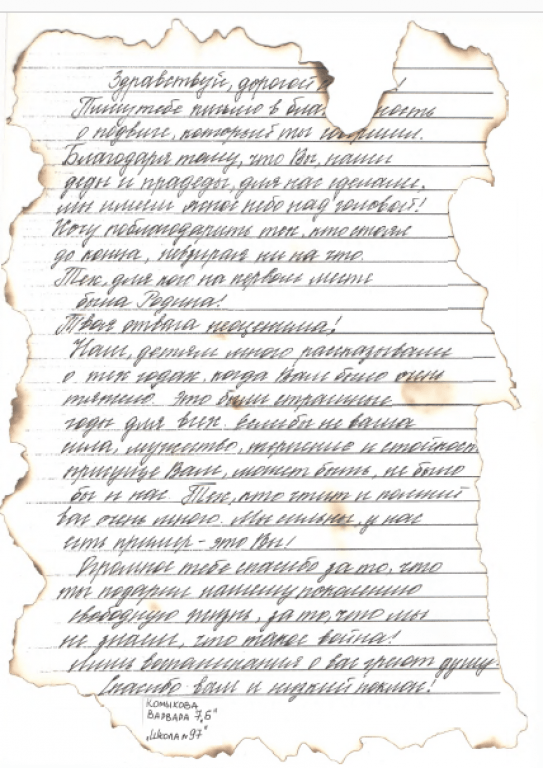 Здравствуй, дорогой !
Пишу тебе письмо в
о подвиге, который ты совершил.
Благодаря тому, что Вы, наши
деды и прадеды, для нас сделали,
мы имеем ясное небо над головой!
Хочу поблагодарить тех, кто стоял
до конца, невзирая ни на что.
Тех, для кого на первом месте
была Родина!
Твоя отвага неоценима!
Нам, детям много рассказывали
о тех годах, когда Вам было очень
тяжело. Это были страшные
годы для всех. Если бы не ваша
сила, мужество, терпение и стойкость
присущие Вам, может быть, не было
бы и нас. Тех, кто чтит и помнит
вас очень много. Мы сильны, у нас
есть пример - это Вы!
Огромное тебе спасибо за то, что
ты подарил нашему поколению
свободную жизнь, за то, что мы
не знаем, что такое война!
Лишь воспоминания о вас греют душу.
Спасибо вам и низкий поклон!
Комыкова
Варвара 7 „Б"
„Школа №97"